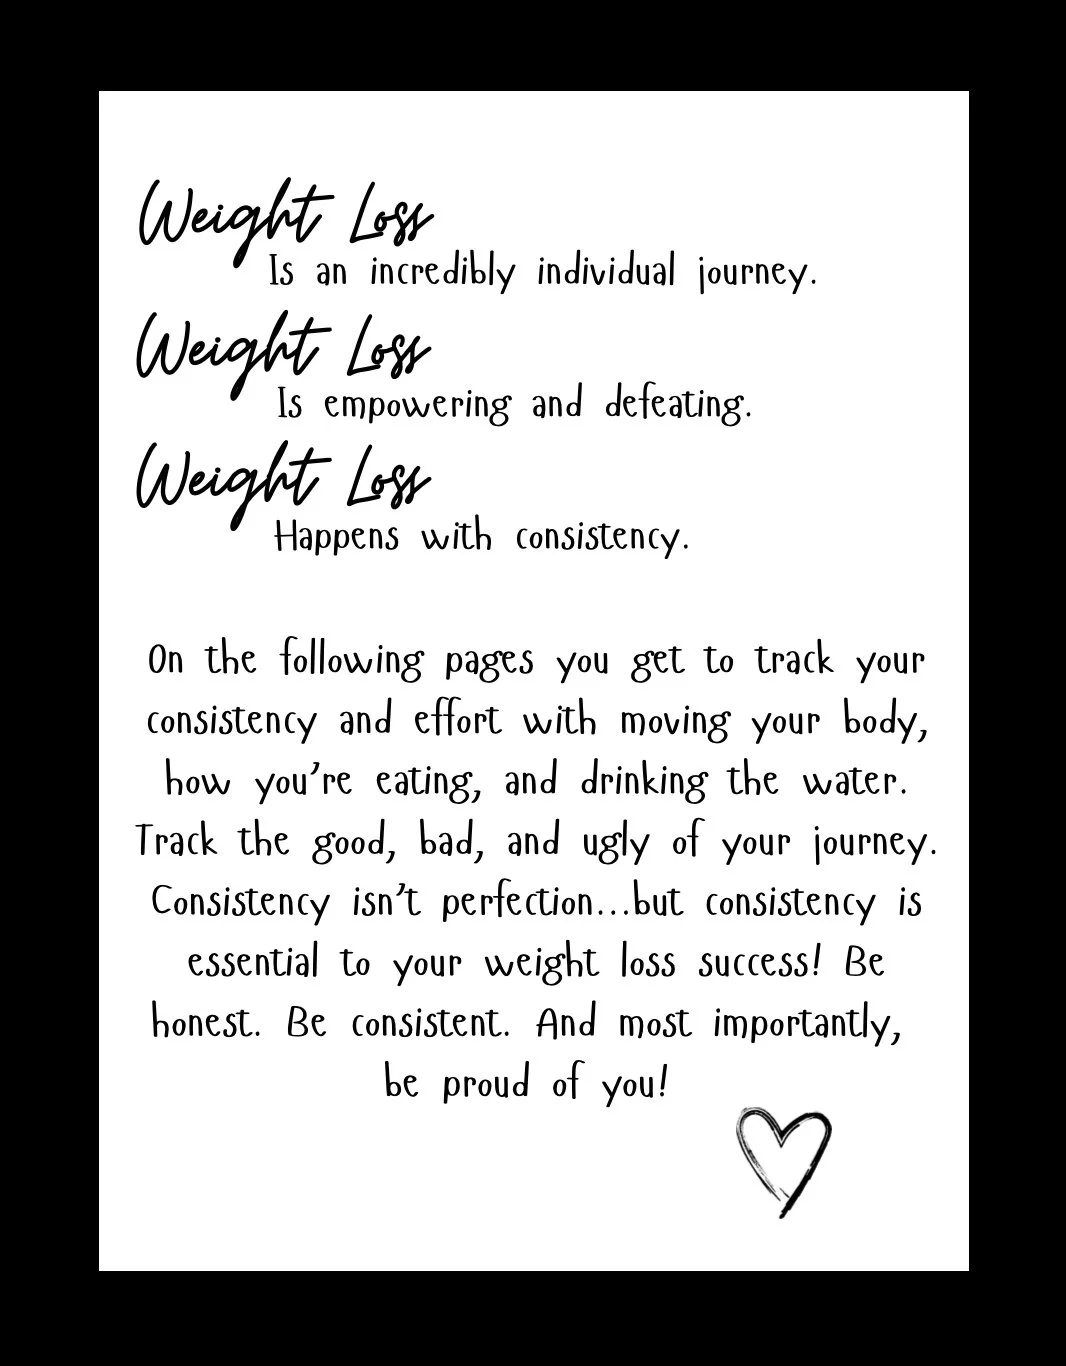 Weight Loss
Is an incredibly individual journey.
Weight Loss
Is empowering and defeating.
Weight Loss
Happens with consistency.
On the following pages you get to track your
consistency and effort with moving your body,
how you're eating, and drinking the water.
Track the good, bad, and ugly of your journey.
Consistency isn't perfection...but consistency is
essential to your weight loss success! Be
honest. Be consistent. And most importantly,
be proud of you!